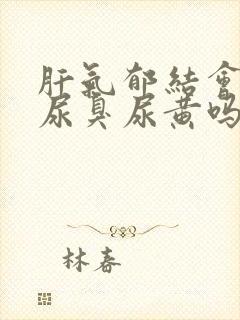 肝氣郁結會
尿臭尿黄吗
林春